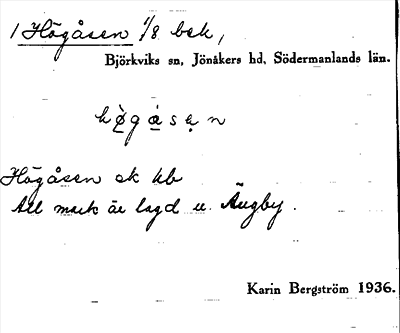 1 Högåsen 1/8 bsk,
Björkviks sn, Jönåkers hd, Södermanlands län.
hø̀gåsen
Högåsen ek kb
All mark är lagd u. Ängby.
Karin Bergström 1936.